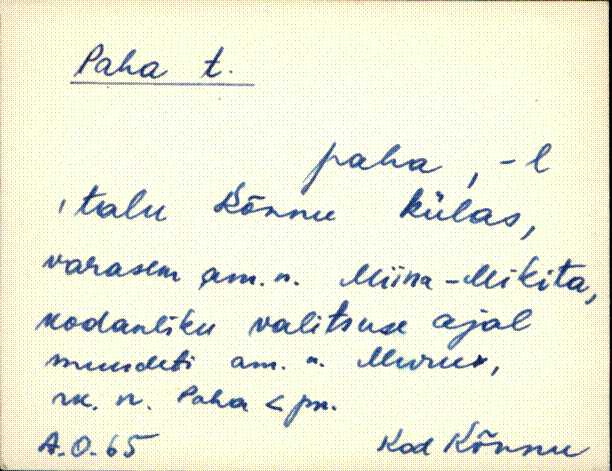 Paha t.
paha, -l
, talu Kõnnu külas,
varasem am. n. Miina-Mikita,
kodanliku valitsuse ajal
muudeti am. n.
rk. n. Paha < pn.
A.O. 65 Kod Kõnnu